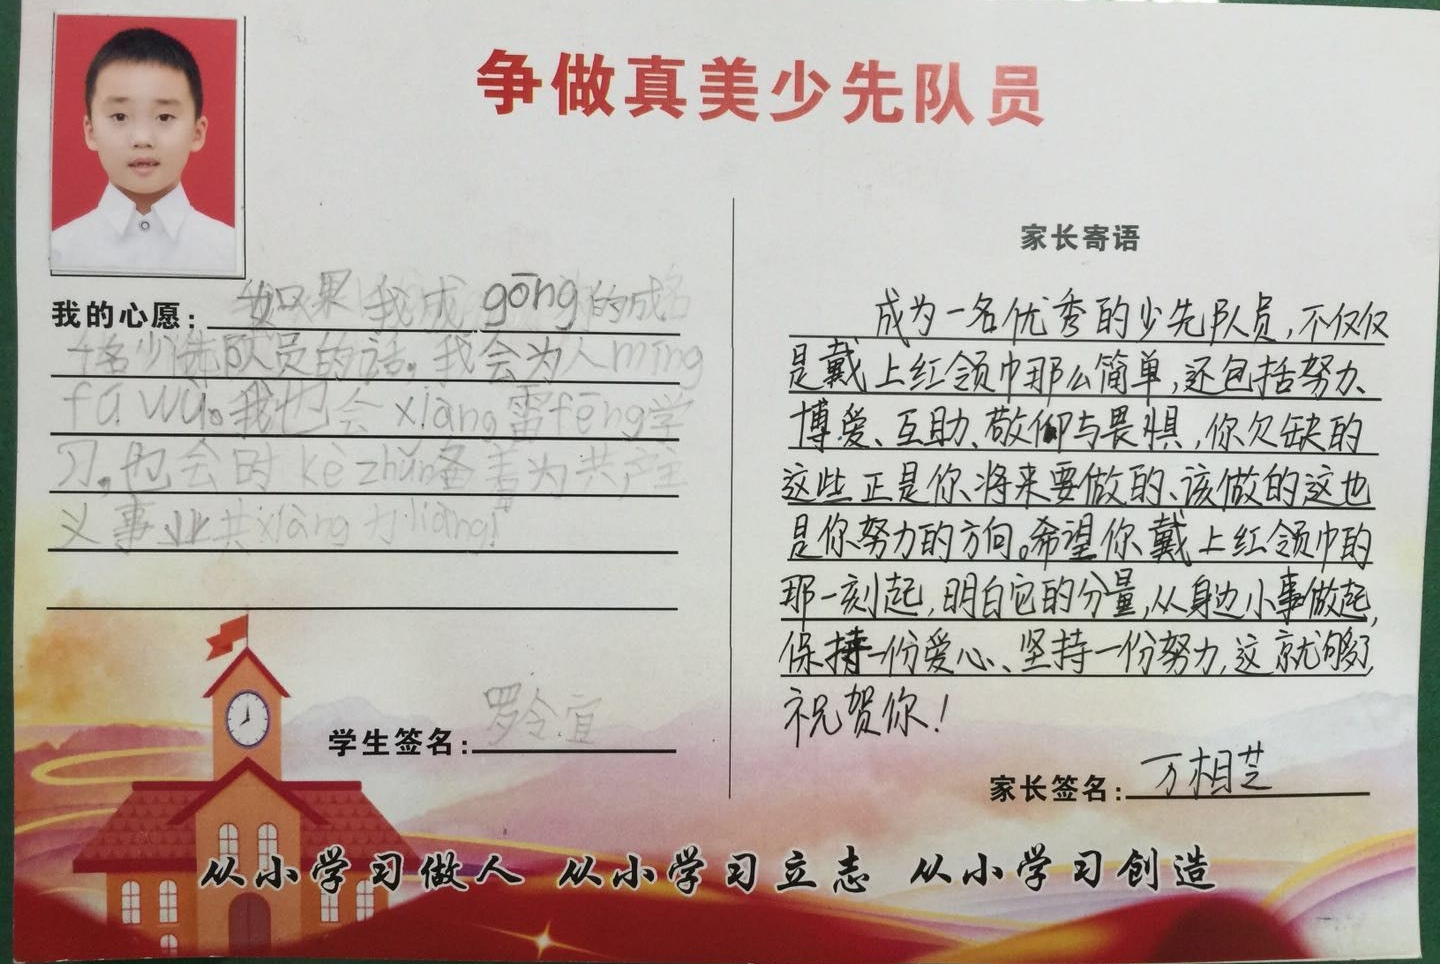 争做真美少先队员
我的心愿：如果我成gōng的成
名少先队员的话，我会为人mín
fú wù。我也会xiàng雷fēng学
习，也会时kè zhǔn备着为共产主
义事业共xiàng力liàng！
学生签名：罗令宜
家长寄语
成为一名优秀的少先队员，不仅仅
是戴上红领巾那么简单，还包括努力、
博爱、互助、敬仰与畏惧，你欠缺的
这些正是你将来要做的、该做的这也
是你努力的方向。希望你戴上红领巾的
那一刻起，明白它的分量，从身边小事做起，
保持一份爱心、坚持一份努力，这就够了，
祝贺你！
家长签名：万相芝
从小学习做人 从小学习立志 从小学习创造